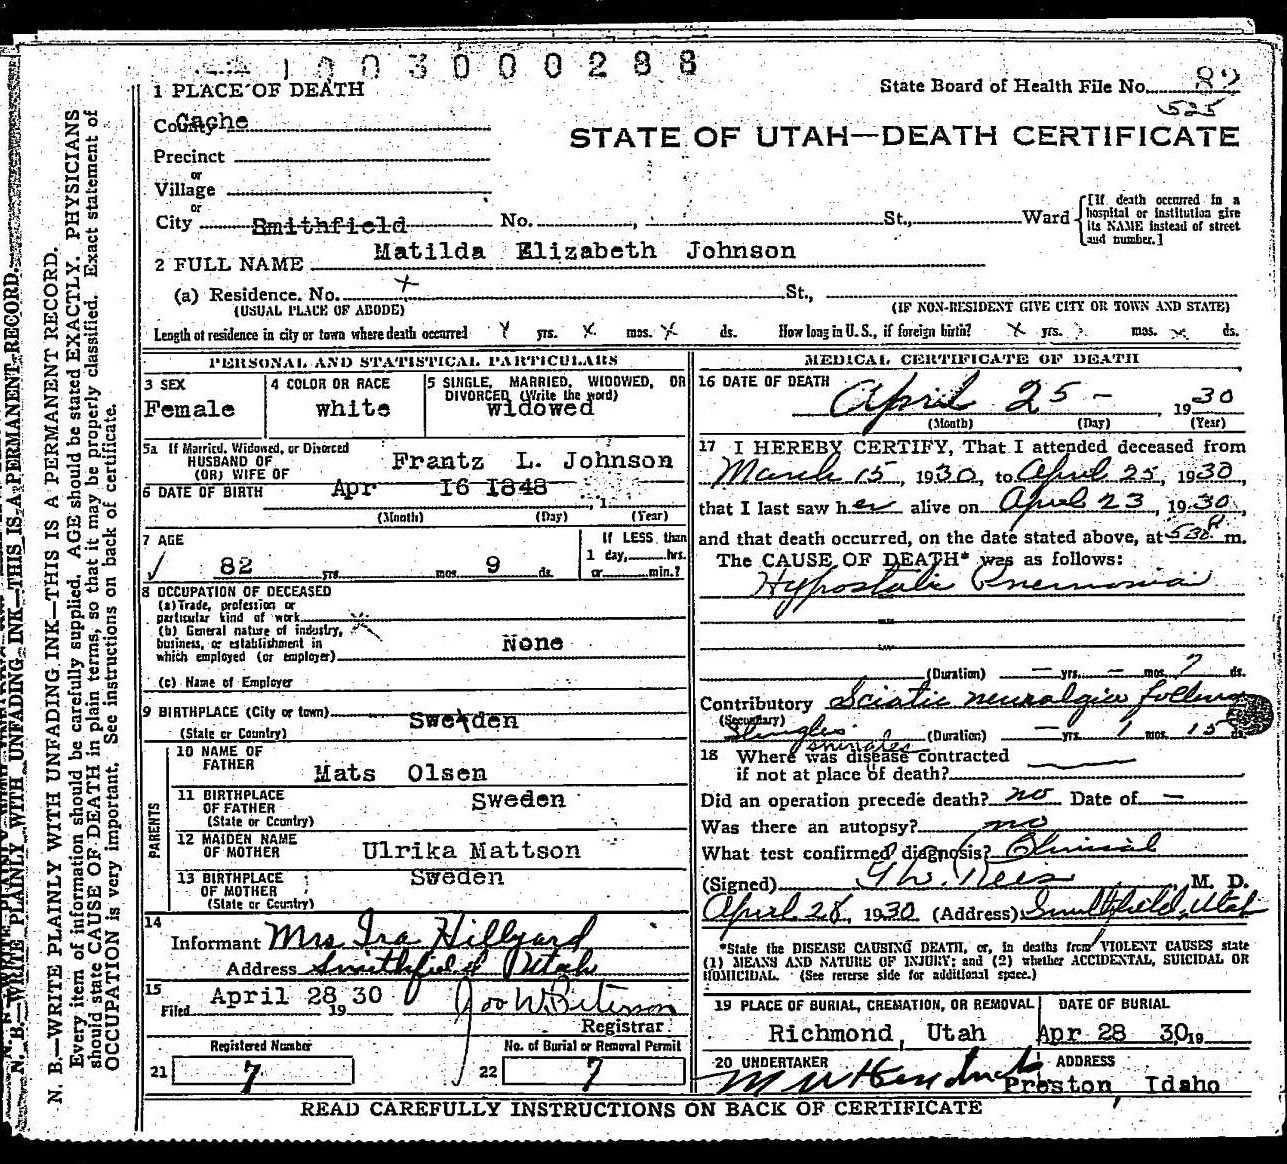 1003000288
1 PLACE OF DEATH
State Board of Health File No. 82
525
County Cache
STATE OF UTAH—DEATH CERTIFICATE
Precinct
or
Village
or
City Smithfield No. St., Ward
[If death occurred in a hospital or institution give its NAME instead of street and number.]
2 FULL NAME Matilda Elizabeth Johnson
(a) Residence. No. St.,
(USUAL PLACE OF ABODE) (IF NON-RESIDENT GIVE CITY OR TOWN AND STATE)
Length of residence in city or town where death occurred yrs. x mos. x ds. How long in U. S., if foreign birth? x yrs. mos. x ds.
PERSONAL AND STATISTICAL PARTICULARS
3 SEX
Female
4 COLOR OR RACE
white
5 SINGLE, MARRIED, WIDOWED, OR DIVORCED (Write the word)
widowed
5a If Married, Widowed, or Divorced
HUSBAND OF
(OR) WIFE OF Frantz L. Johnson
6 DATE OF BIRTH Apr 16 1848, 1
(Month) (Day) (Year)
7 AGE
82 yrs. mos. 9 ds.
If LESS than
1 day, hrs.
or min.?
8 OCCUPATION OF DECEASED
(a) Trade, profession or
particular kind of work
(b) General nature of industry,
business, or establishment in
which employed (or employer) None
(c) Name of Employer
9 BIRTHPLACE (City or town) Sweden
(State or Country)
PARENTS
10 NAME OF
FATHER Mats Olsen
11 BIRTHPLACE
OF FATHER Sweden
(State or Country)
12 MAIDEN NAME
OF MOTHER Ulrika Mattson
13 BIRTHPLACE
OF MOTHER Sweden
(State or Country)
14
Informant Mrs Ira Hillyard
Address Smithfield Utah
15
Filed April 28 19 30 Joo W. Peterson
Registrar
Registered Number No. of Burial or Removal Permit
21 7 22 7
MEDICAL CERTIFICATE OF DEATH
16 DATE OF DEATH
April 25 - , 19 30
(Month) (Day) (Year)
17 I HEREBY CERTIFY, That I attended deceased from
March 15, 1930, to April 25, 1930
that I last saw her alive on April 23, 1930,
and that death occurred, on the date stated above, at 530 P m.
The CAUSE OF DEATH* was as follows:
Hypostatic Pnemonia
(Duration) — yrs. — mos. 7 ds.
Contributory Sciatic neuralgia following
(Secondary)
Shingles (Duration) — yrs. 1 mos. 15 ds.
shingles
18 Where was disease contracted
if not at place of death?
Did an operation precede death? no Date of —
Was there an autopsy? no
What test confirmed diagnosis? Clinical
(Signed) G W. Rees M. D.
April 28, 1930 (Address) Smithfield, Utah
*State the DISEASE CAUSING DEATH, or, in deaths from VIOLENT CAUSES state
(1) MEANS AND NATURE OF INJURY; and (2) whether ACCIDENTAL, SUICIDAL OR
HOMICIDAL. (See reverse side for additional space.)
19 PLACE OF BURIAL, CREMATION, OR REMOVAL DATE OF BURIAL
Richmond, Utah Apr 28 30 19
20 UNDERTAKER ADDRESS
M W Hendricks Preston, Idaho
READ CAREFULLY INSTRUCTIONS ON BACK OF CERTIFICATE
N. B.—WRITE PLAINLY WITH UNFADING INK—THIS IS A PERMANENT RECORD.
N. B.—WRITE PLAINLY WITH UNFADING INK—THIS IS A PERMANENT RECORD.
Every item of information should be carefully supplied. AGE should be stated EXACTLY. PHYSICIANS
should state CAUSE OF DEATH in plain terms, so that it may be properly classified. Exact statement of
OCCUPATION is very important. See instructions on back of certificate.